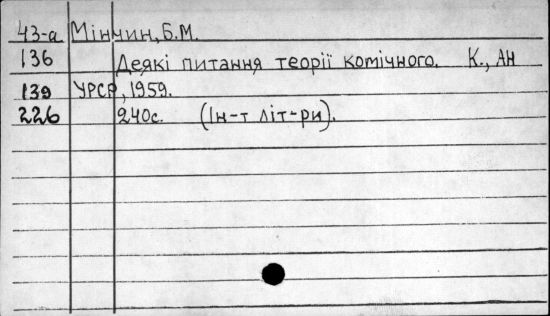 43-а Мінчин, Б.М.
136 Деякі питання теорії комічного. К., АН
139 УРСР, 1959.
226 240с. (Ін-т літ-ри).